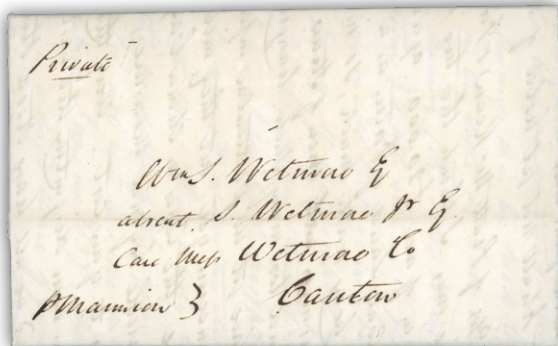 Private
Wm S. Wetmore Eq
absent, S. Wetmore Jr Eq.
Care Mess Wetmore Co
Canton